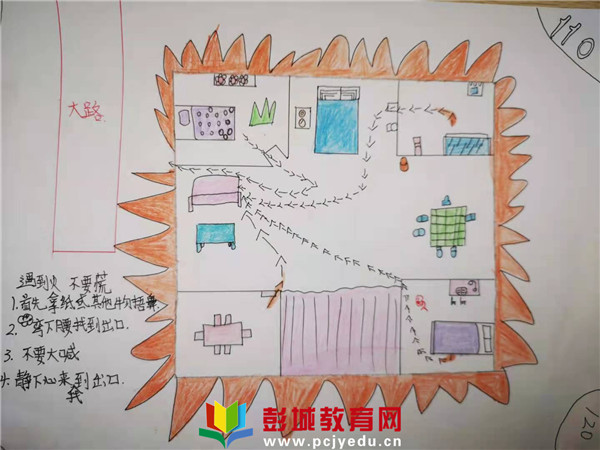 110
大路
遇到火 不要慌
1.首先,拿纸或其他物捂鼻
2. 弯下腰找到出口.
3. 不要大喊
4. 静下心来到出口.
找
120
彭城教育网
www.pcjyedu.cn